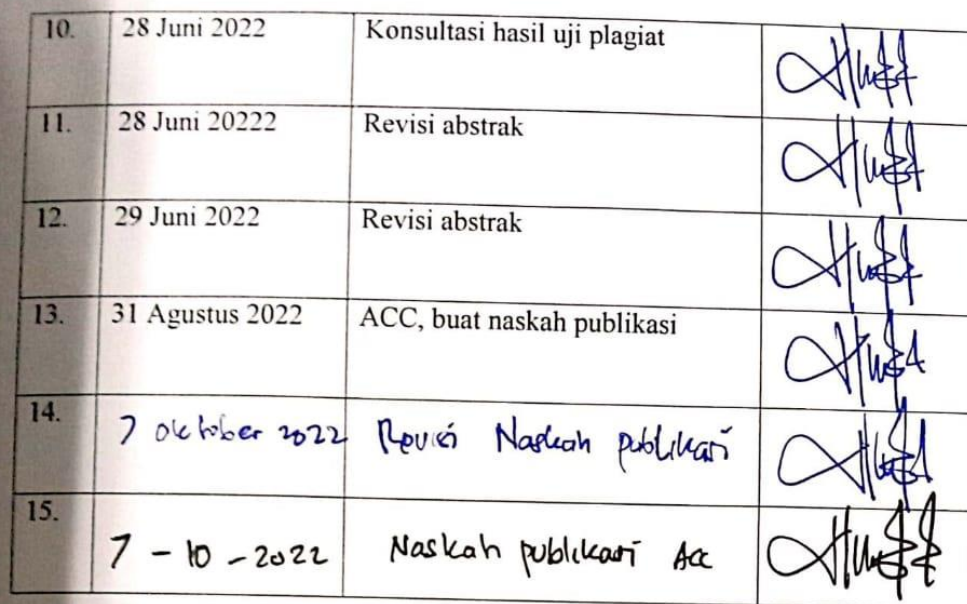 10. 28 Juni 2022 Konsultasi hasil uji plagiat
11. 28 Juni 20222 Revisi abstrak
12. 29 Juni 2022 Revisi abstrak
13. 31 Agustus 2022 ACC, buat naskah publikasi
14. 7 oktober 2022 Revisi Naskah publikasi
15. 7 - 10 - 2022 Naskah publikasi Acc